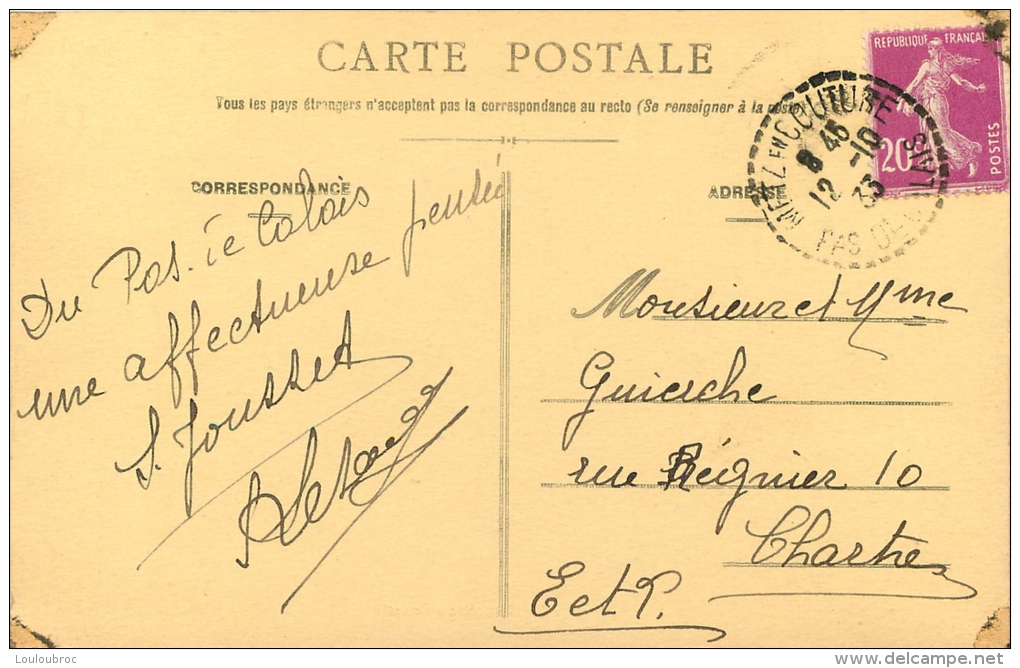 CARTE POSTALE
Tous les pays étrangers n'acceptent pas la correspondance au recto (Se renseigner à la poste)
CORRESPONDANCE
Du Pas. de Calais
une affectueuse pensée
S. Jousset
ADRESSE
REPUBLIQUE FRANÇAISE
20c
POSTES
METZ EN COUTURE
8 45
12 -10
33
PAS DE CALAIS
Monsieur et Mme
Guierche
rue Régnier 10
Chartres
E et L.
Louloubroc
delcampe.net